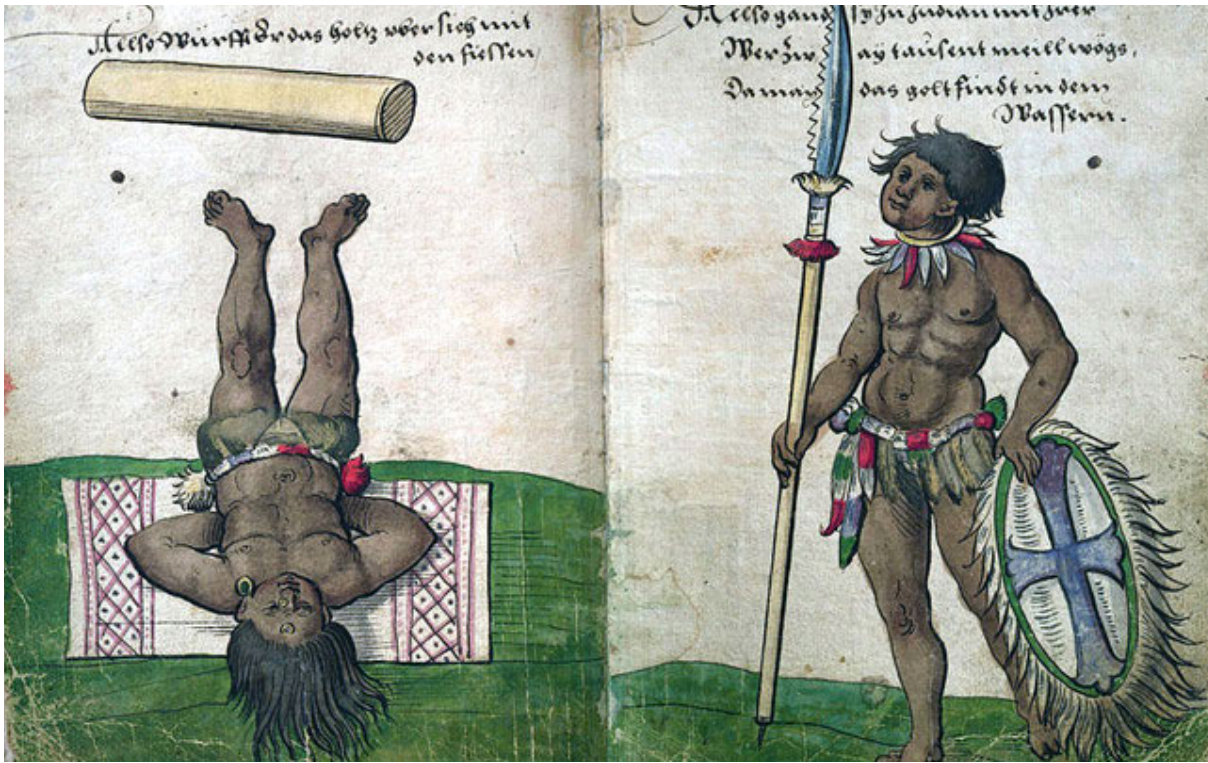 Allso Würfft Er das holtz vber sich mit
den fiessen
Allso gand sy In Indian mit Irer
Wer Zway tausent meill wögs,
Da man das golt findt in dem
Wassern.